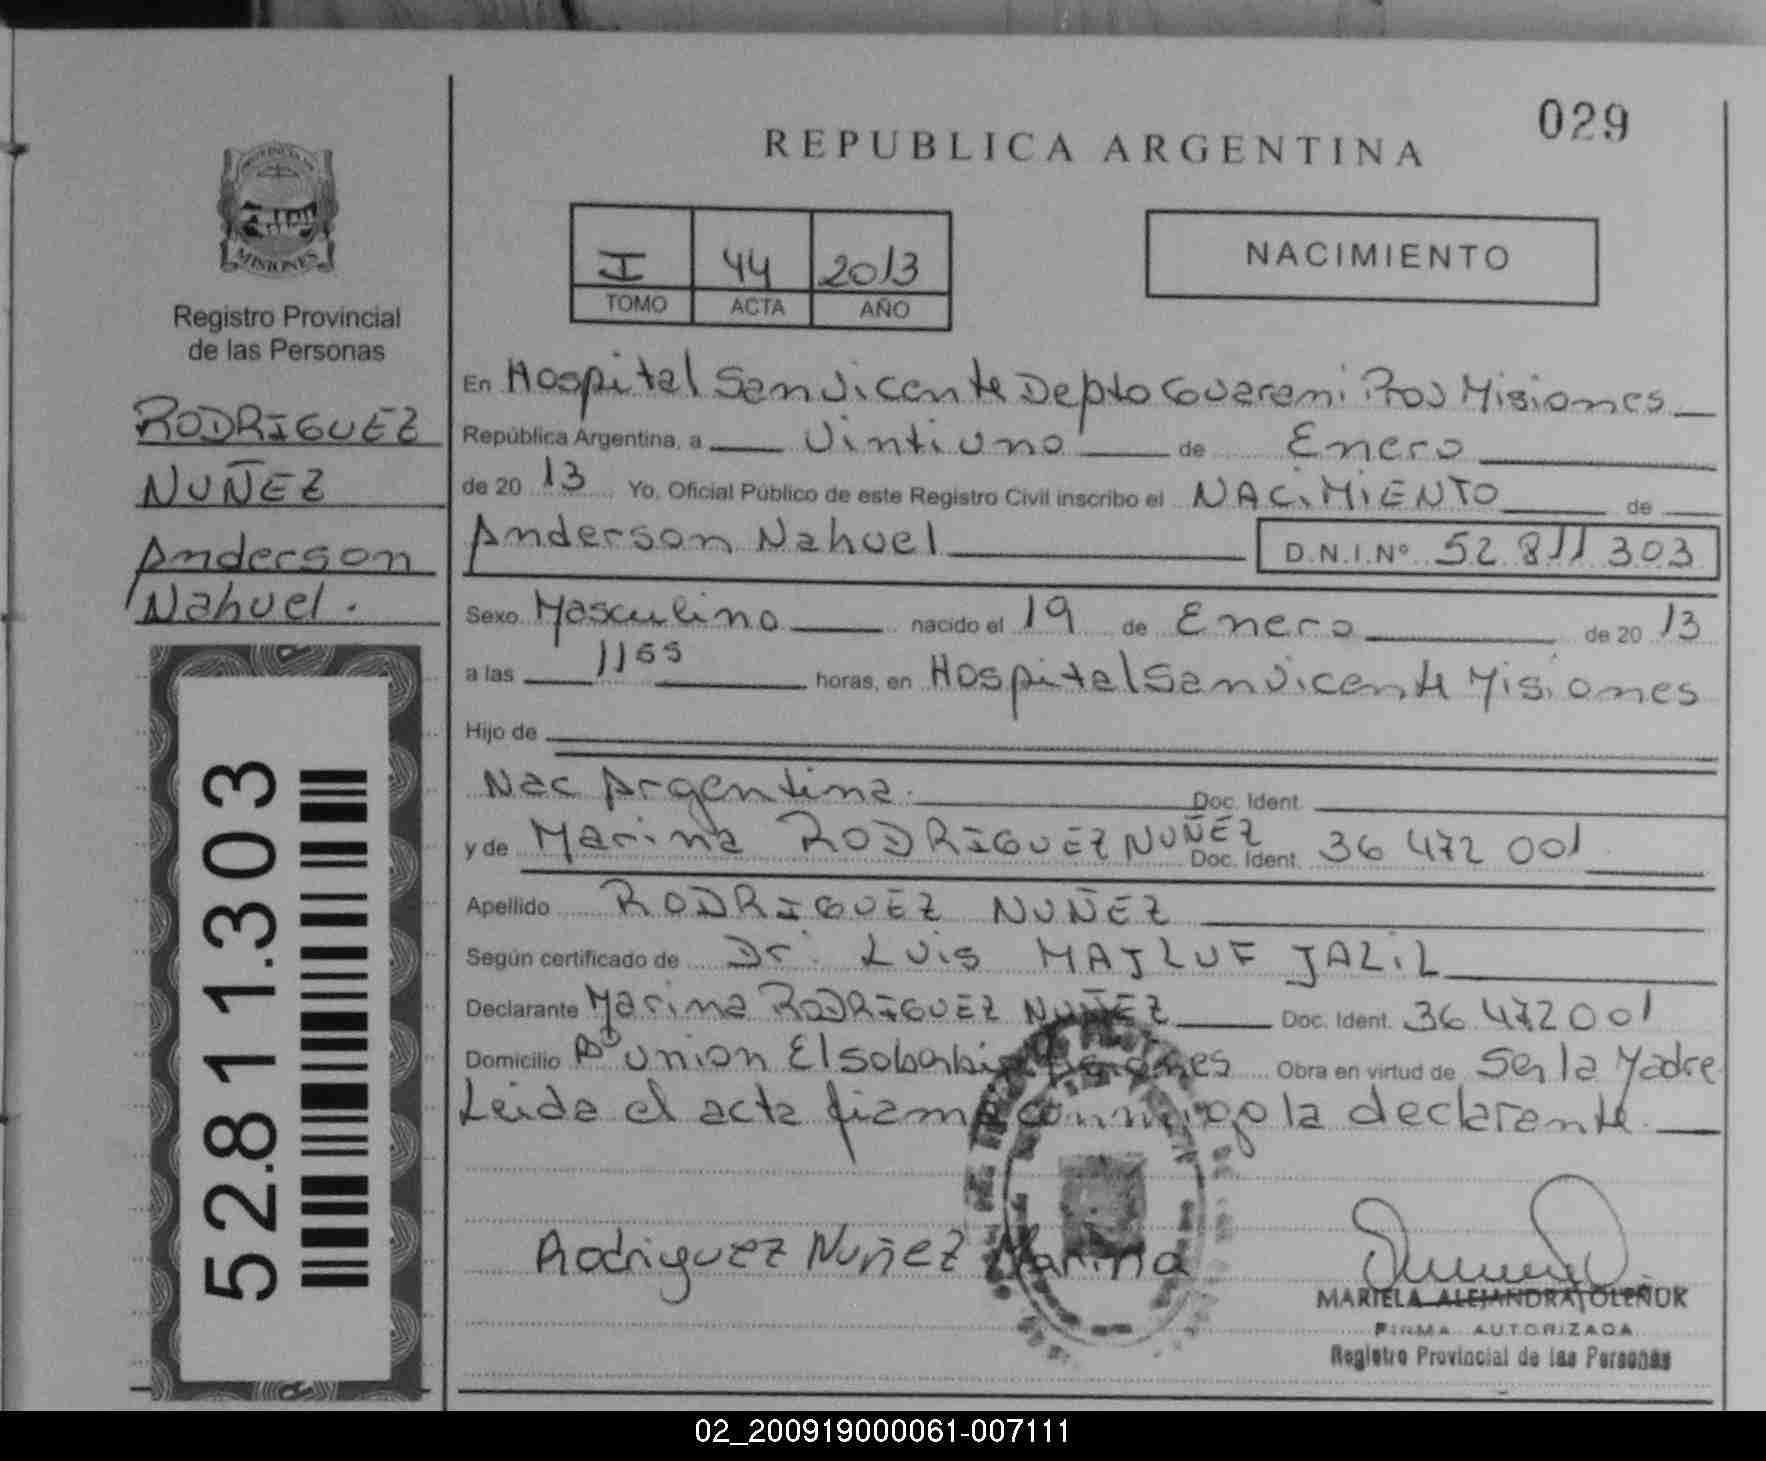 029
REPUBLICA ARGENTINA
MISIONES
Registro Provincial
de las Personas
RODRIGUEZ
NUÑEZ
Anderson
Nahuel.
52.811.303
I 44 2013
TOMO ACTA AÑO
NACIMIENTO
En Hospital San Vicente Depto Guarani Prov Misiones
República Argentina, a Vintiuno de Enero
de 20 13 Yo, Oficial Público de este Registro Civil inscribo el NACIMIENTO de
Anderson Nahuel D.N.I.Nº 52 811 303
Sexo Masculino nacido el 19 de Enero de 20 13
a las 1155 horas, en Hospital San Vicente Misiones
Hijo de
Nac Argentina. Doc. Ident.
y de Marina RODRIGUEZ NUÑEZ Doc. Ident. 36 472 001
Apellido RODRIGUEZ NUÑEZ
Según certificado de Dr. Luis MAJLUF JALIL
Declarante Marina RODRIGUEZ NUÑEZ Doc. Ident. 36 472 001
Domicilio Bº Union El soberbio Misiones Obra en virtud de Ser la Madre
Leida el acta firma conmigo la declarante.
Rodriguez Nuñez Marina
MARIELA ALEJANDRA OLEÑUK
FIRMA AUTORIZADA
Registro Provincial de las Personas
02_200919000061-007111